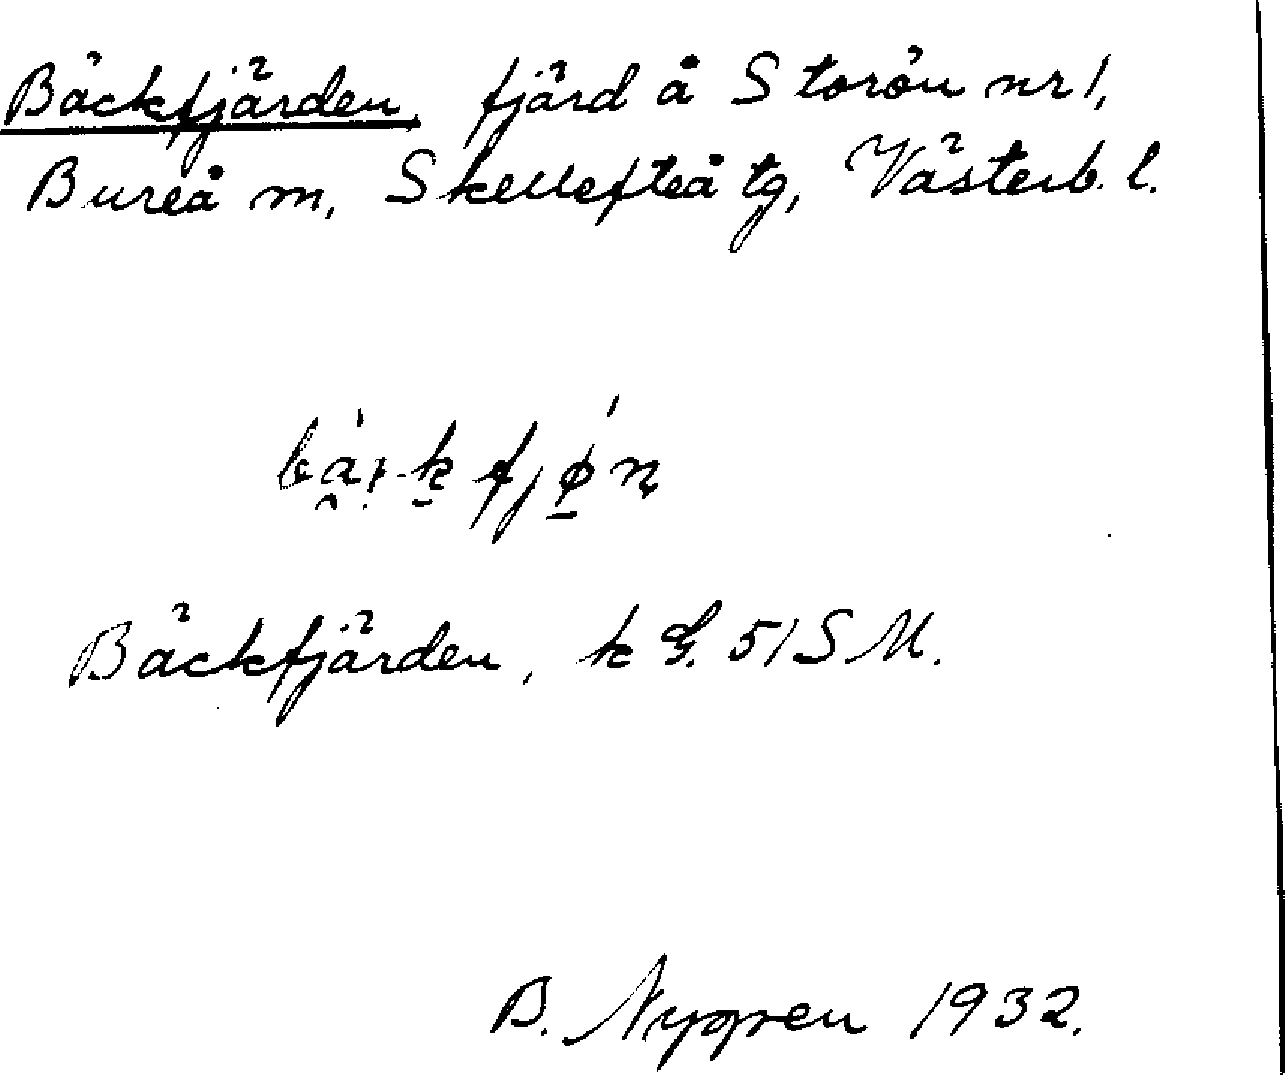 Bäckfjärden, fjärd å Storön nr 1,
Bureå m, Skellefteå tg, Västerb. l.
Bäckfjärden, k G. 51 SM.
B. Nygren 1932.